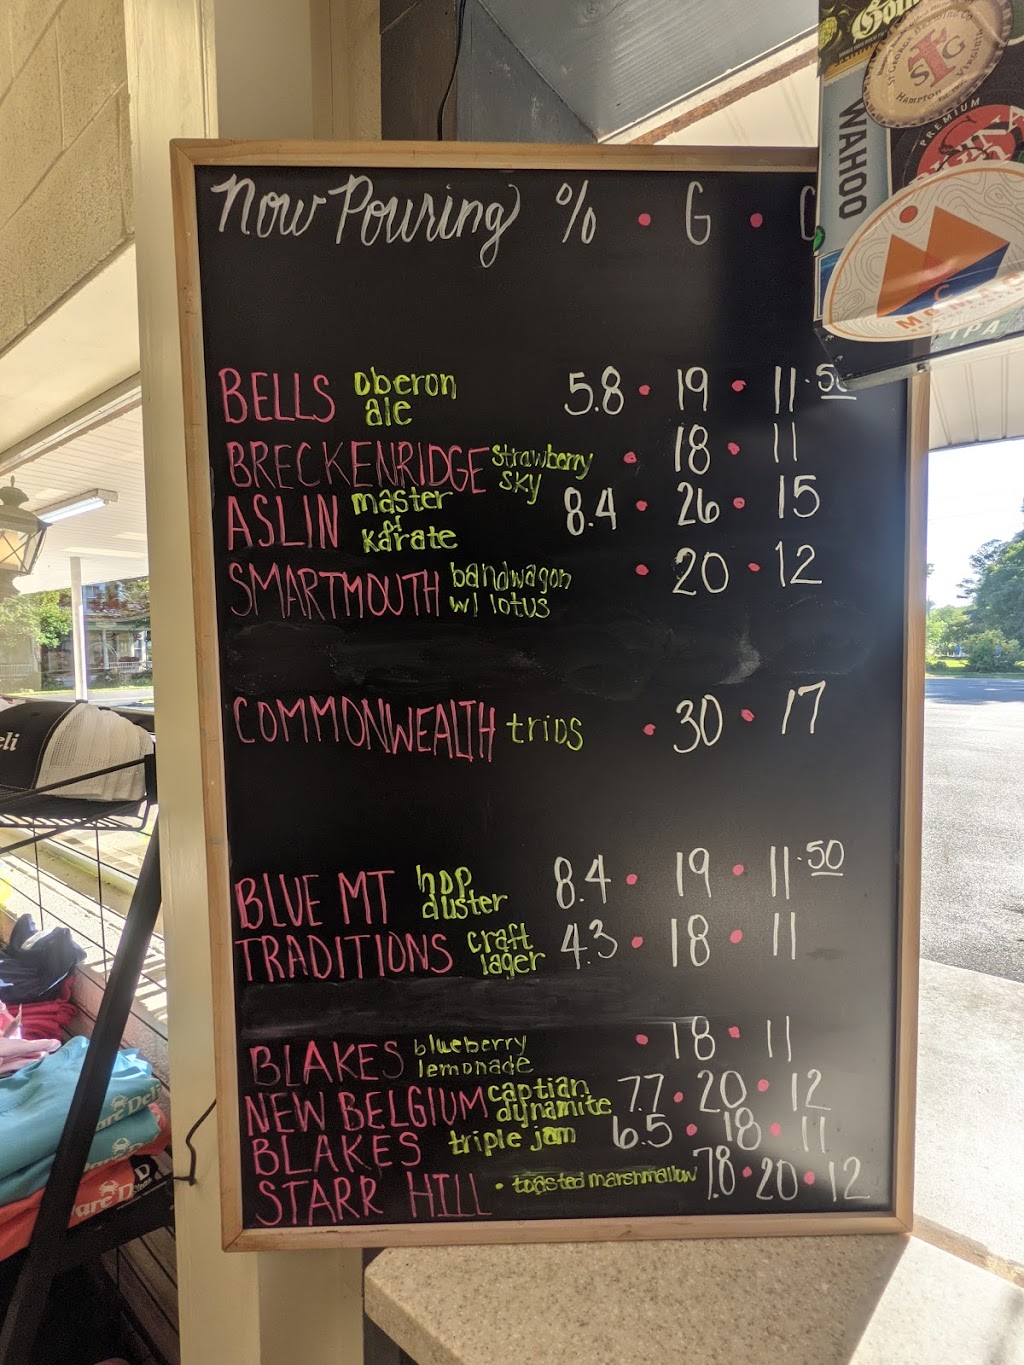 Now Pouring % • G • C
BELLS oberon ale 5.8 • 19 • 11.50
BRECKENRIDGE strawberry sky • 18 • 11
ASLIN master of karate 8.4 • 26 • 15
SMARTMOUTH bandwagon w/ lotus • 20 • 12
COMMONWEALTH trios • 30 • 17
BLUE MT hop duster 8.4 • 19 • 11.50
TRADITIONS craft lager 4.3 • 18 • 11
BLAKES blueberry lemonade • 18 • 11
NEW BELGIUM captian dynamite 7.7 • 20 • 12
BLAKES triple jam 6.5 • 18 • 11
STARR HILL • toasted marshmallow 7.8 • 20 • 12
WAHOO
ST GEORGE BREWING CO
STG
Hampton, Virginia
PREMIUM
IPA
eli